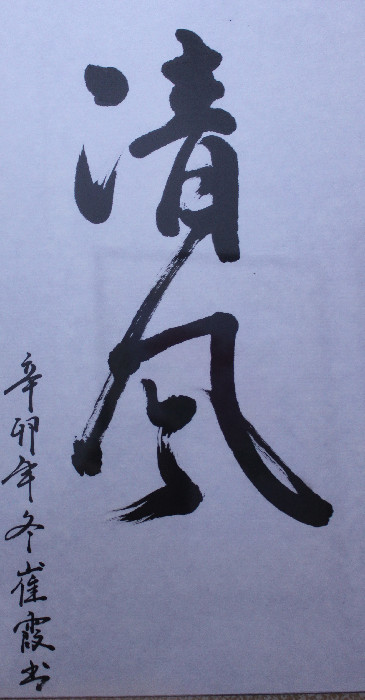 清风
辛卯年冬崔霞书